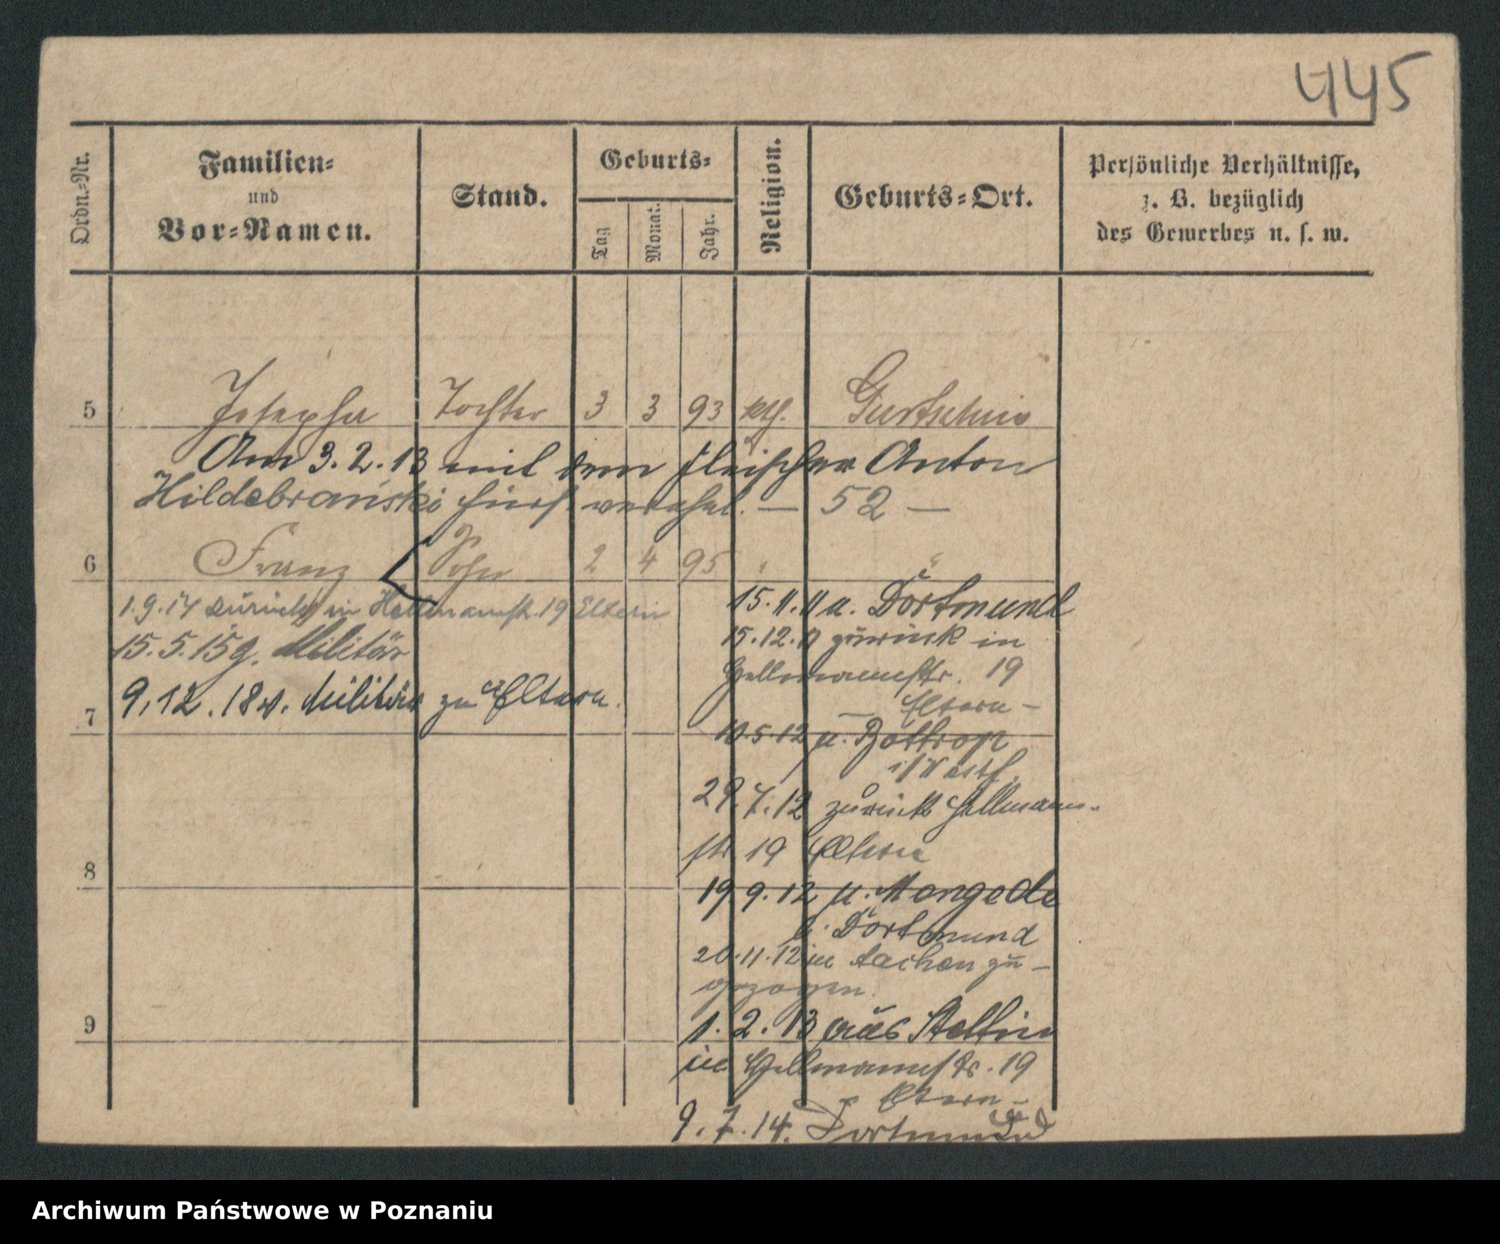 445
Ordn.-Nr.
Familien-
und
Vor-Namen.
Stand.
Geburts-
Tag
Monat.
Jahr.
Religion.
Geburts-Ort.
Persönliche Verhältnisse,
z. B. bezüglich
des Gewerbes u. s. w.
5 Josepha Tochter 3 3 93 kth. Gurtschin
Am 3.2.13 mit dem Fleischer Anton
Hildebrański hier verehel. — 52 —
6 Franz Sohn 2 4 95 " "
1.9.14 zurück in Hellmannstr. 19 Eltern
15.5.15 g. Militär
9.12.18 v. Militär zu Eltern.
15.11.11 n. Dortmund
15.12.11 zurück in
Hellmannstr. 19
— Eltern —
7
10.5.12 n. Bottrop
i/Westf.
29.7.12 zurück Hellmann-
str 19 Eltern
8
19 9.12 n. Mengede
b. Dortmund
20.11.12 in Aachen zu-
gezogen.
9
1.2.13 aus Stettin
in Hellmannstr. 19
Eltern —
9.7.14. Dortmund
Archiwum Państwowe w Poznaniu